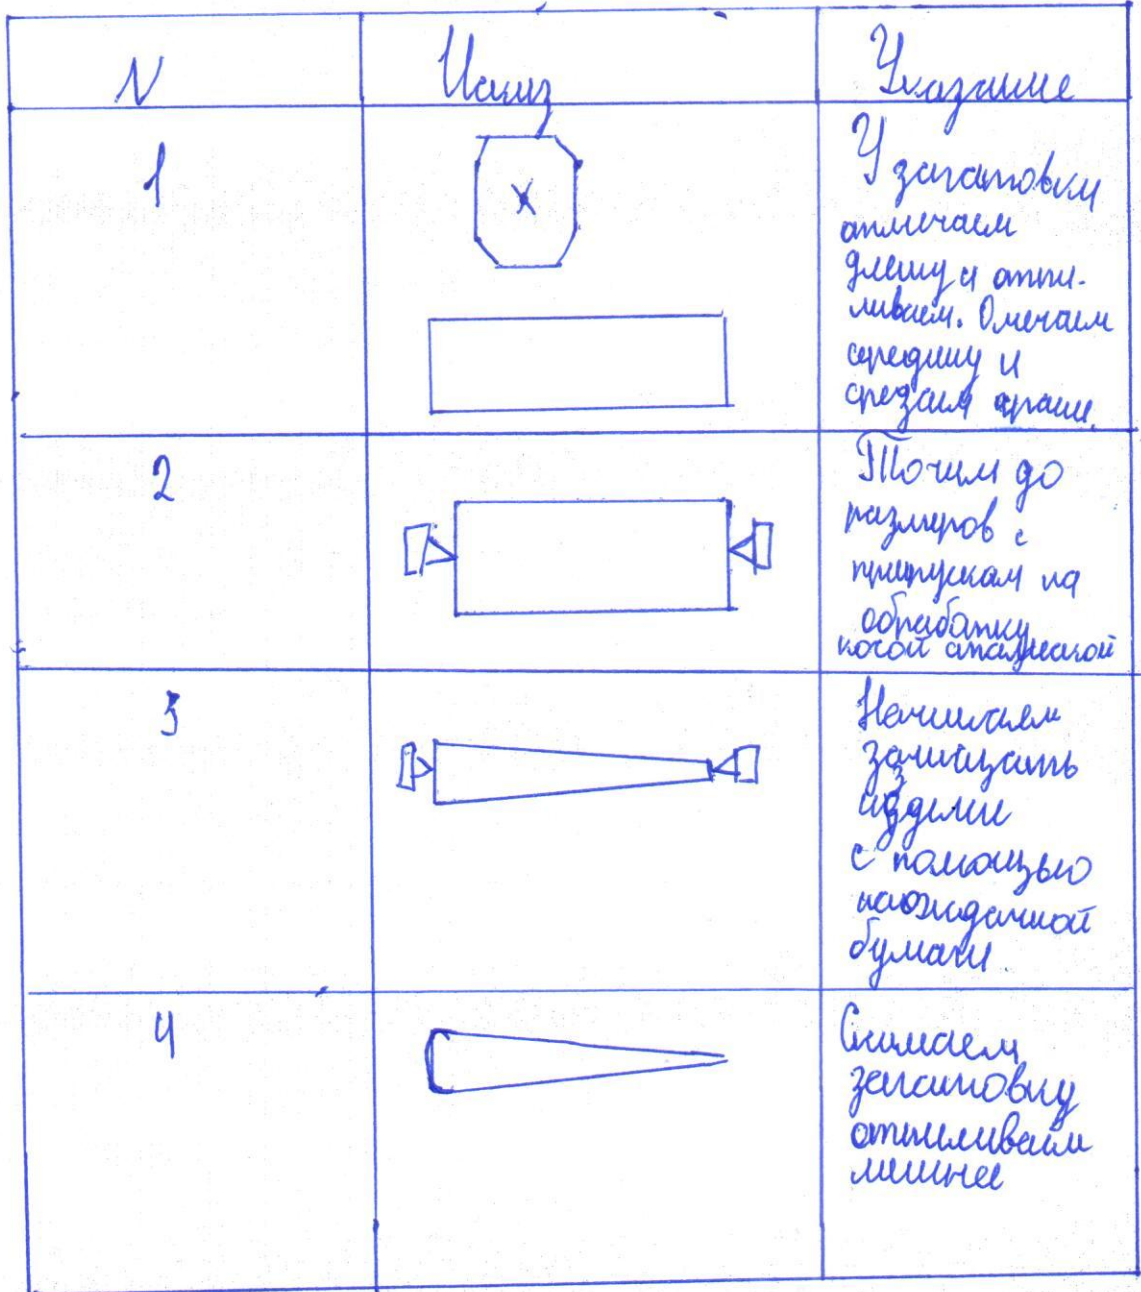 N
Искиз
Указание
1
У загатовки
отмечаем
длену и отпи-
ливаем. Омечаем
середину и
срезаем грани.
2
Точим до
размеров с
припускам на
обработку
косой стамеской
3
Начинаем
зачищать
изделие
с помощью
наждачной
бумаги
4
Снимаем
загатовку
отпиливаем
лишнее